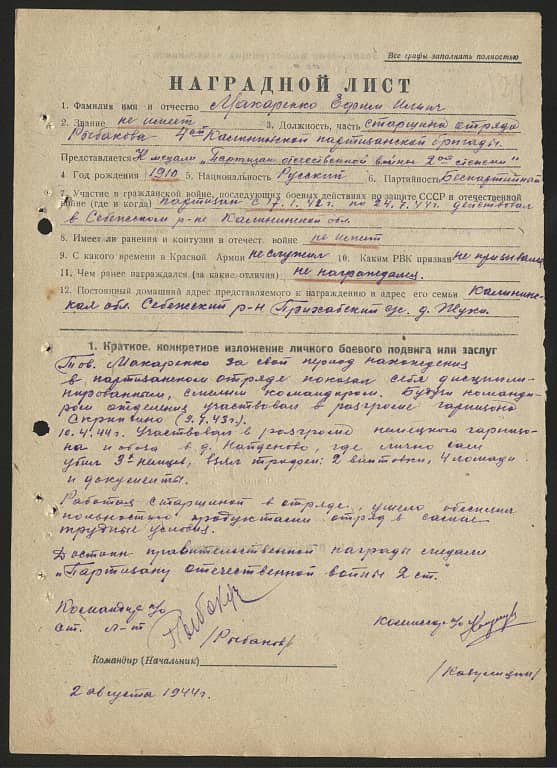 Все графы заполнять полностью
НАГРАДНОЙ ЛИСТ
1. Фамилия имя и отчество Макаренко Ефим Ильич
2. Звание не имеет 3. Должность, часть старшина отряда
Рыбакова 4ой Калининской партизанской бригады.
Представляется К медали „Партизан отечественной войны 2ой степени"
4. Год рождения 1910 5. Национальность Русский 6. Партийность Беспартийный
7. Участие в гражданской войне, последующих боевых действиях по защите СССР и отечественной
войне (где и когда) партизан с 17.1.42г. по 24.7.44г. действовал
в Себежском р-не Калининской обл.
8. Имеет ли ранения и контузии в отечест. войне не имеет
9. С какого времени в Красной Армии не служил 10. Каким РВК призван не призывался
11. Чем ранее награждался (за какие отличия) не награждался.
12. Постоянный домашний адрес представляемого к награждению и адрес его семьи Калининс-
кая обл. Себежский р-н с/с. д. Жуки.
1. Краткое, конкретное изложение личного боевого подвига или заслуг
Тов. Макаренко за свой период нахождения
в партизанском отряде показал себя дисципли-
нированным, смелым командиром. Будучи команди-
ром отделения участвовал в разгроме гарнизона
(3.7.43г.).
10.4.44г. Участвовал в разгроме немецкого гарнизо-
на и обоза в д. где лично сам
убил 3х немцев, взял трофеи: 2 винтовки, 4 лошади
и документы.
Работая старшиной в отряде, умело обеспечил
полностью продуктами отряд в самые
трудные условия.
Достоин правительственной награды медали
„Партизану отечественной войны 2 ст."
Командир п/о
ст. л-т
/Рыбаков/
Комиссар п/о
Командир (Начальник)
2 августа 1944г.